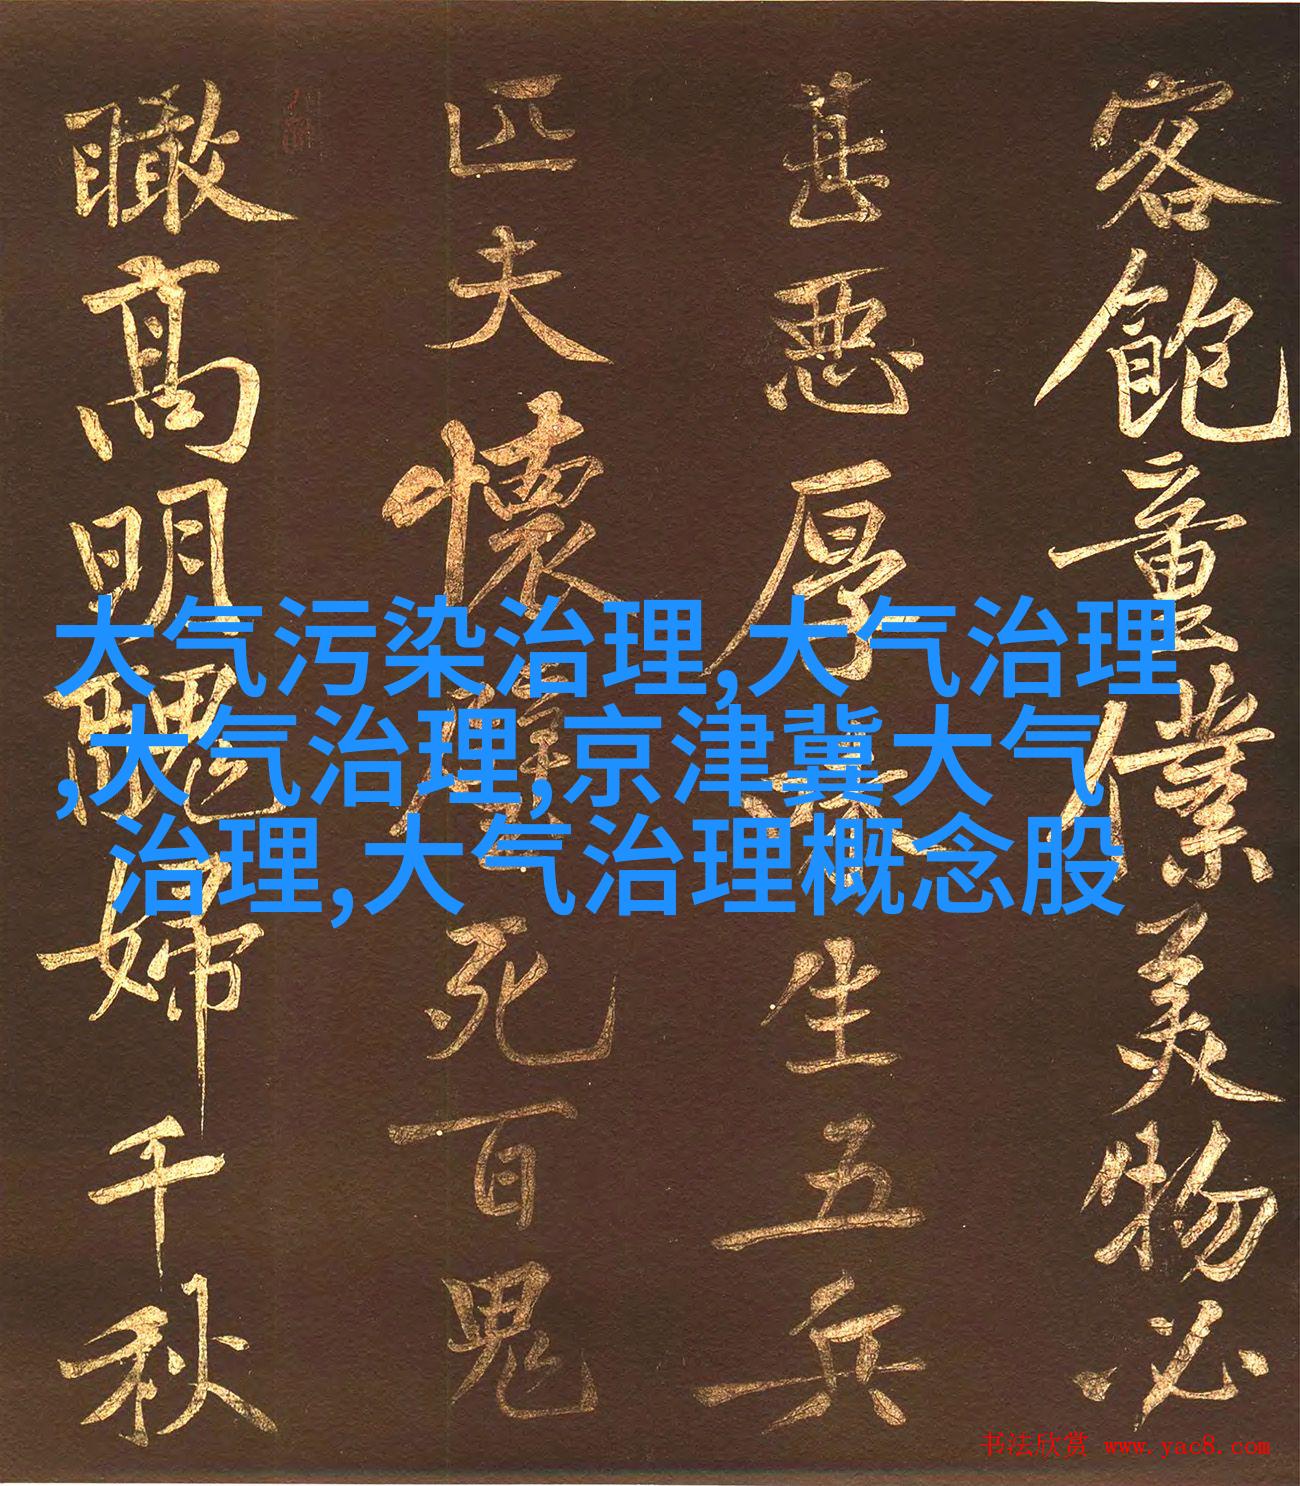 客飽童僕美物必
甚惡厚味生五兵
匹夫懷璧死百鬼
瞰高明醜婦千秋
大气污染治理,大气治理
,大气治理,京津冀大气
治理,大气治理概念股
书法欣赏 www.yac8.com